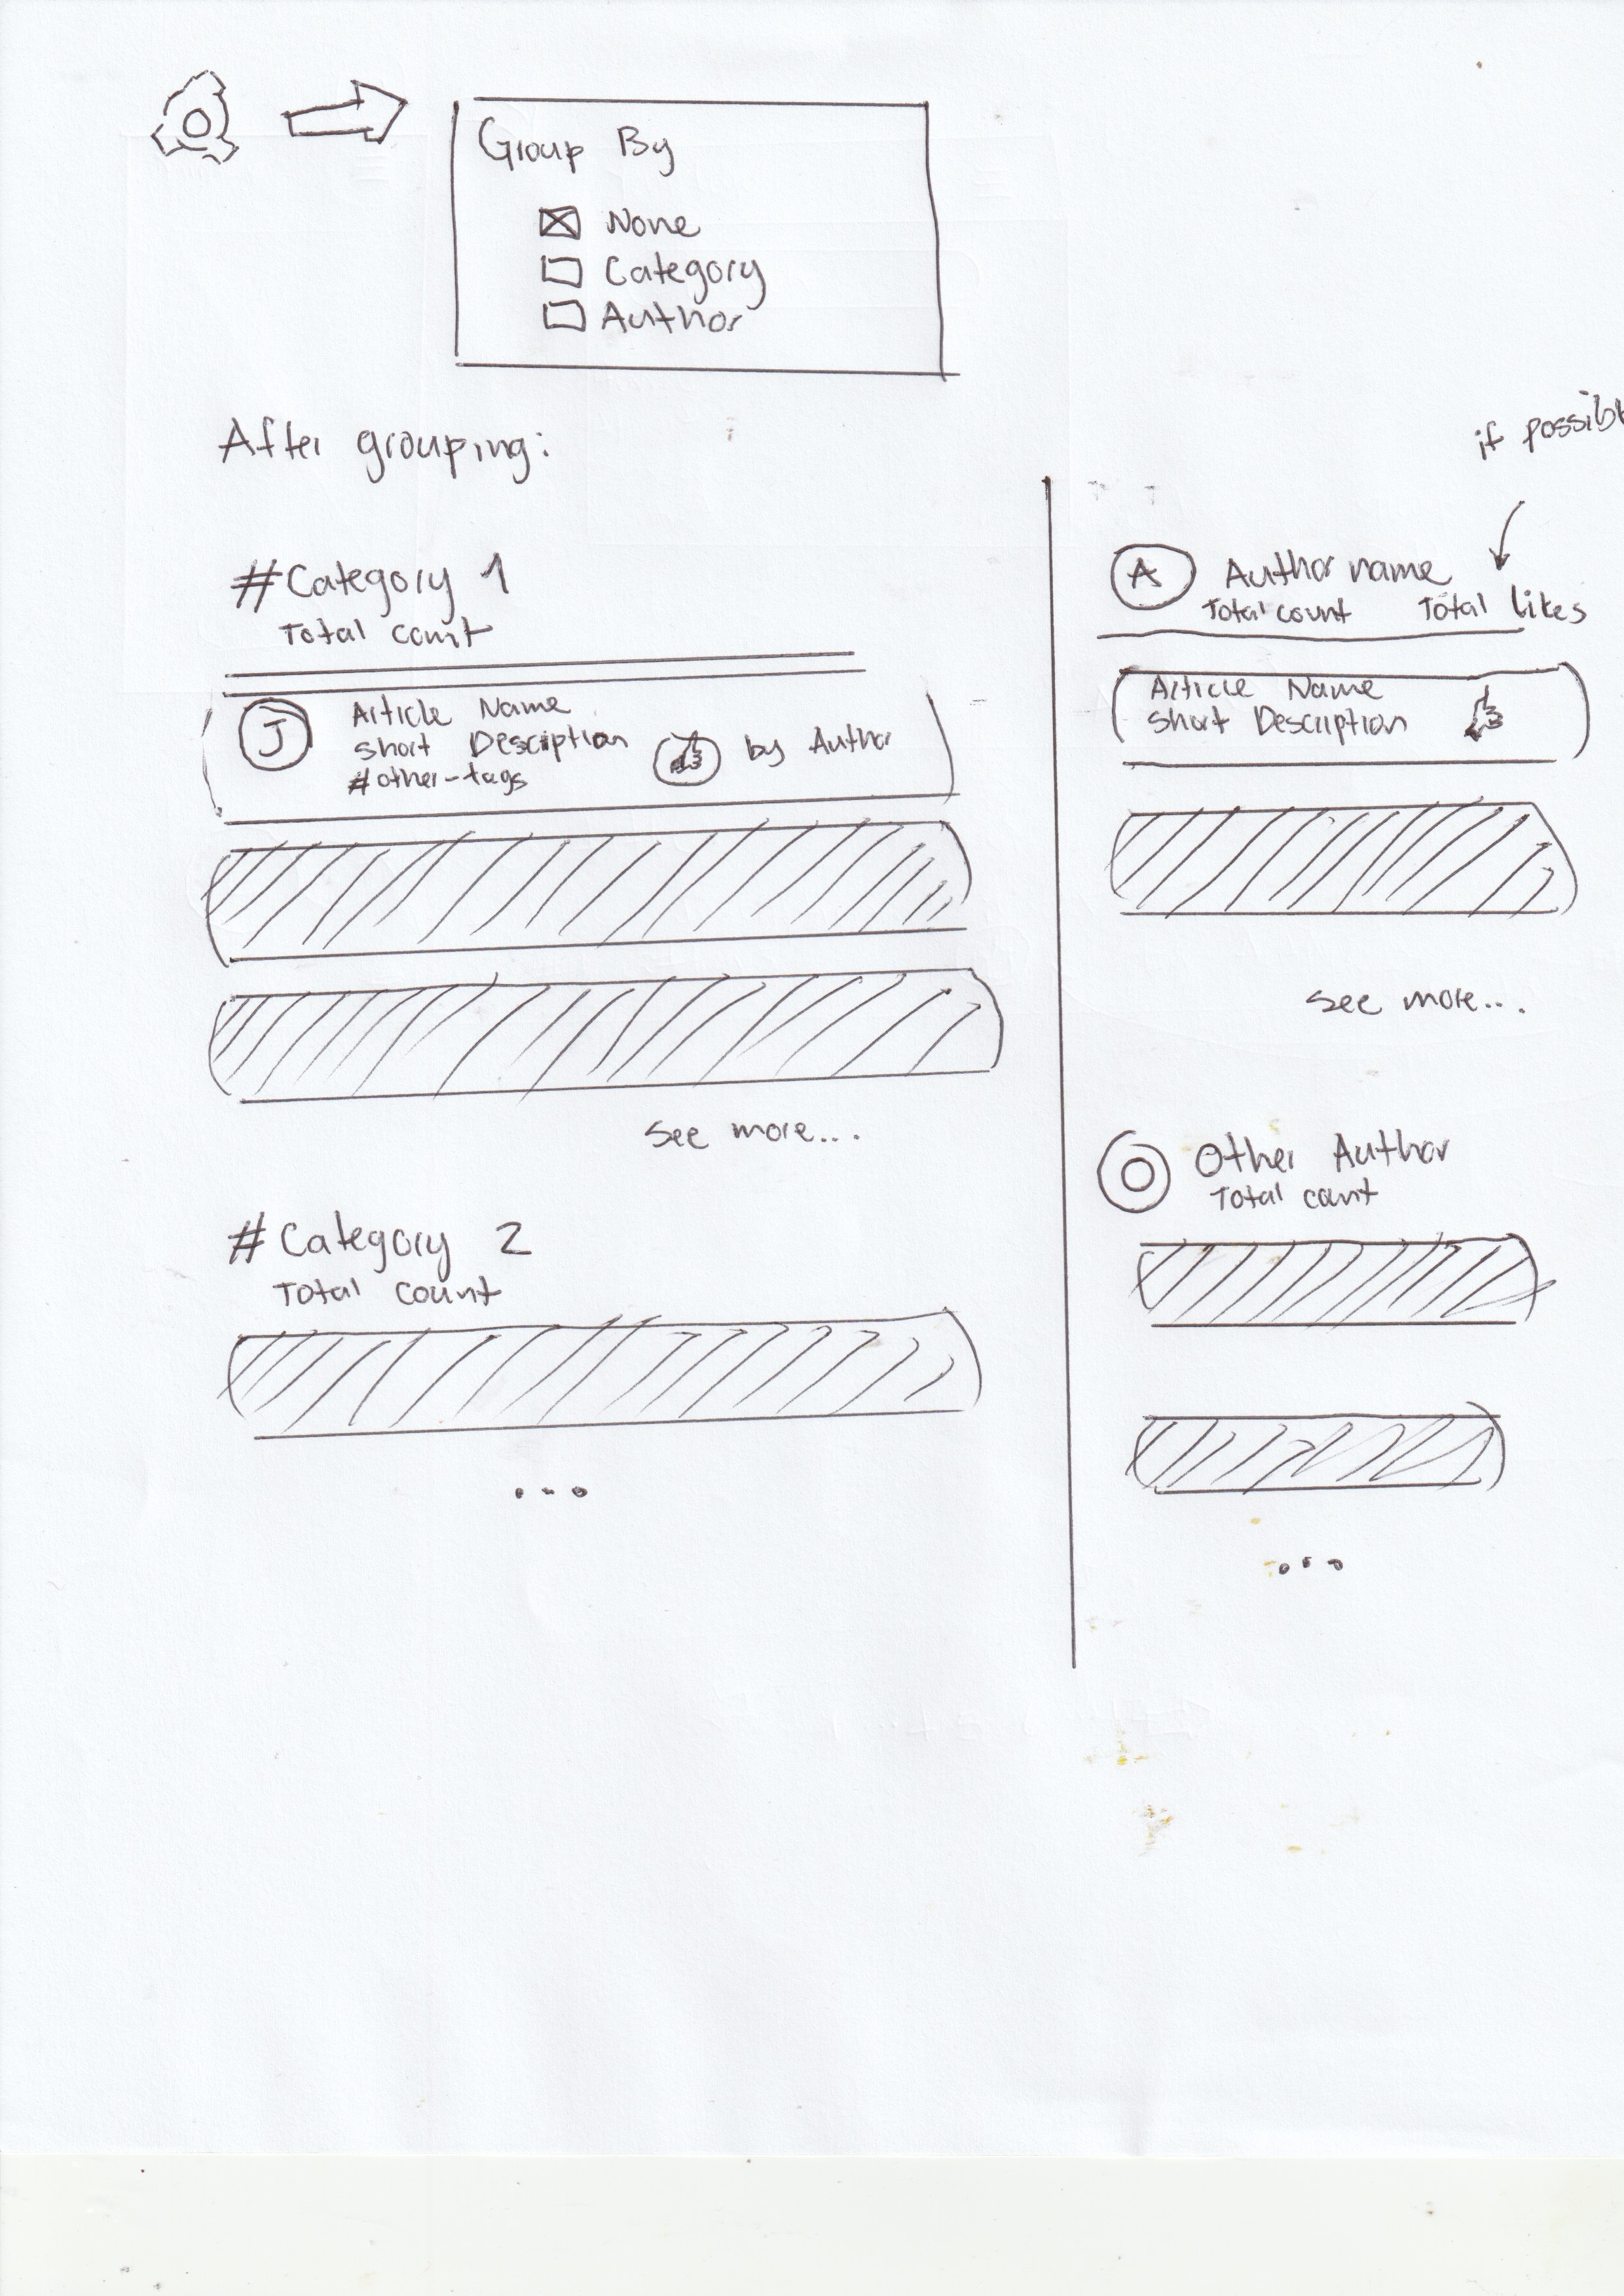 Group By
None
Category
Author
After grouping:
#Category 1
Total count
J
Article Name
Short Description
#other-tags
by Author
See more...
#Category 2
Total count
...
if possibl
A
Author name
Total count Total likes
Article Name
Short Description
See more...
O
Other Author
Total count
...